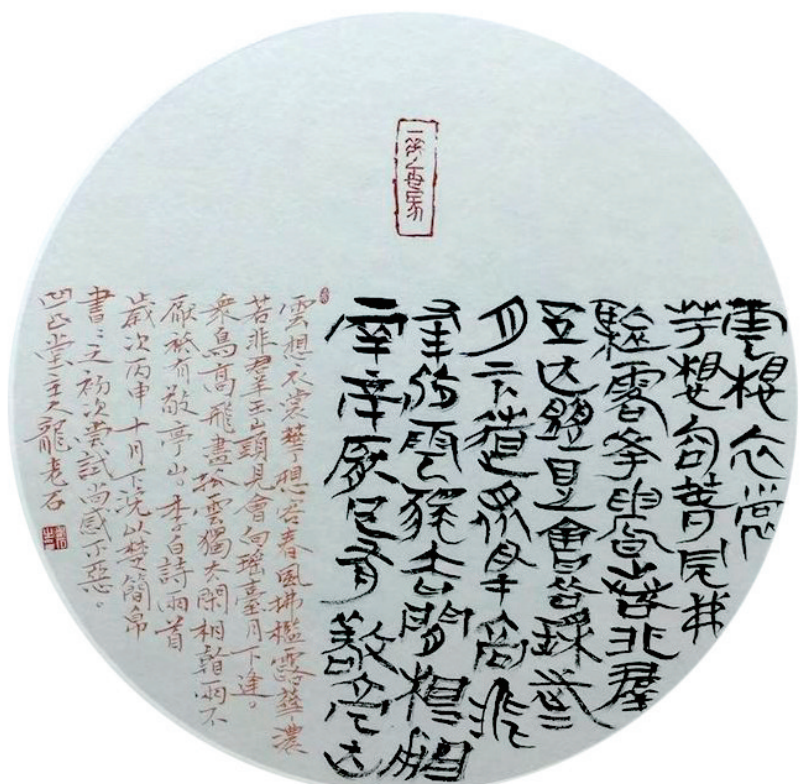 雲想衣裳
華想容春風拂
檻露華濃若非羣
玉山頭見會向瑤臺
月下逢衆鳥高飛
盡孤雲獨去閒相看
兩不厭只有敬亭山
雲想衣裳華想容春風拂檻露華濃
若非羣玉山頭見會向瑤臺月下逢。
衆鳥高飛盡孤雲獨去閑相看兩不
厭衹有敬亭山。李白詩兩首
歲次丙申十月下浣以楚簡帛
書〻之初次嘗試尚感不惡。
凹凸堂主人龍老石